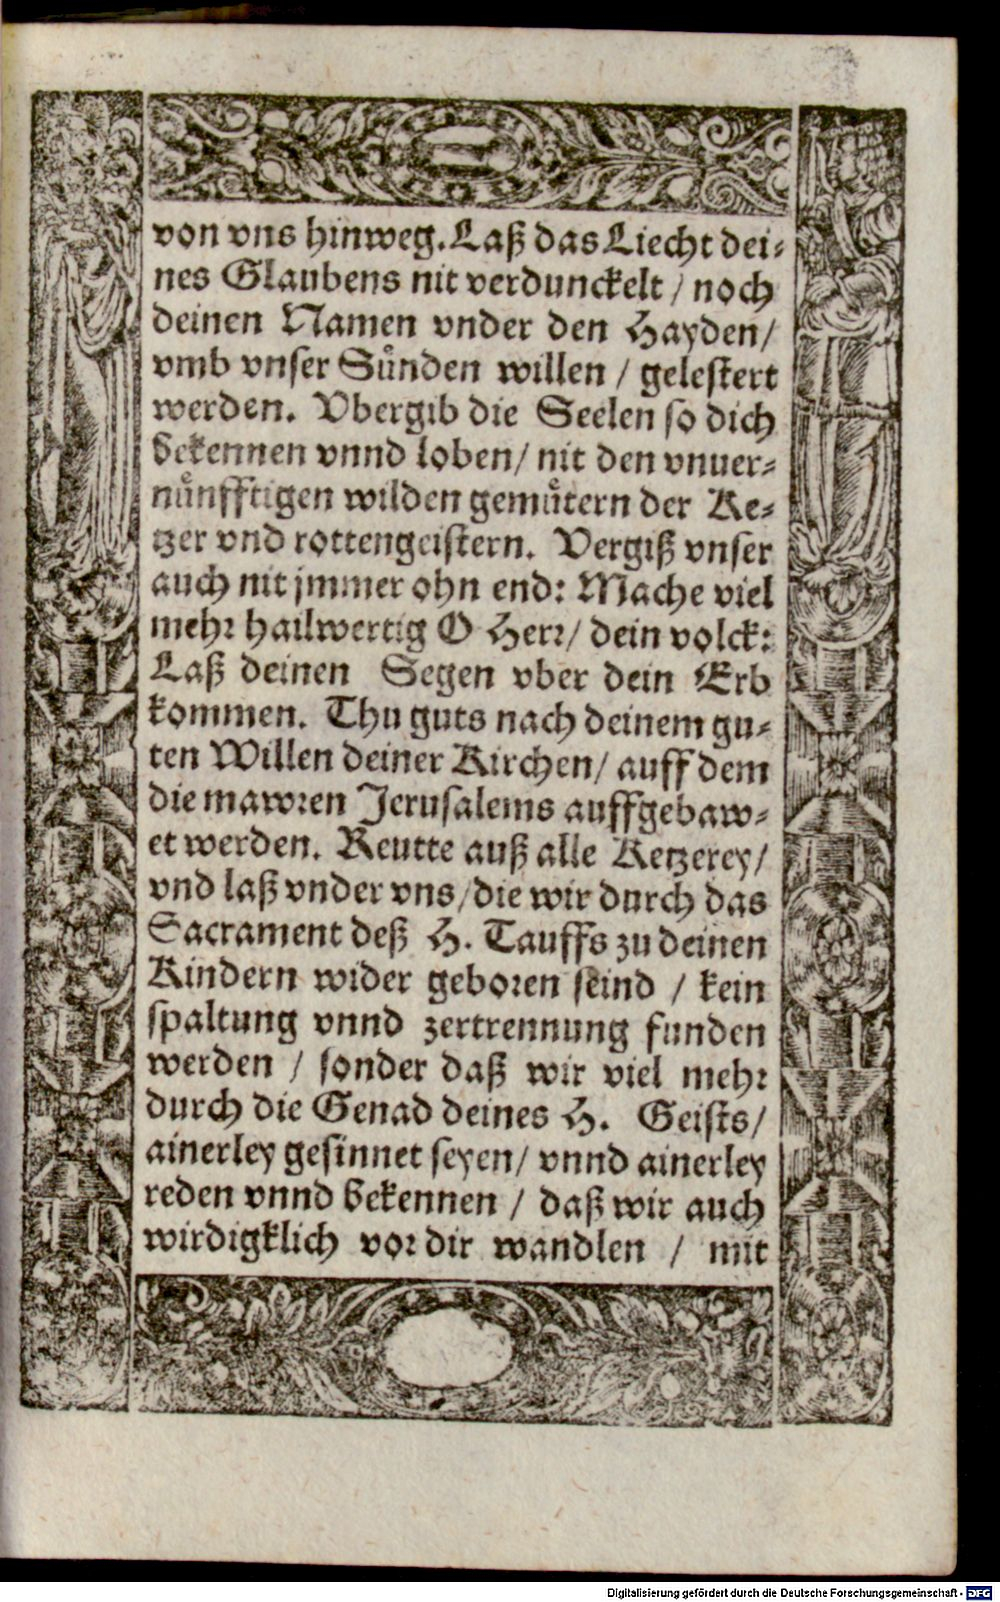 von vns hinweg. Laß das Liecht dei-
nes Glaubens nit verdunckelt / noch
deinen Namen vnder den Hayden/
vmb vnser Sůnden willen / gelestert
werden. Vbergib die Seelen so dich
bekennen vnnd loben/ nit den vnuer-
nůnfftigen wilden gemůtern der Ke-
tzer vnd rottengeistern. Vergiß vnser
auch nit jmmer ohn end: Mache viel
mehr hailwertig O Herr/ dein volck:
Laß deinen Segen vber dein Erb
kommen. Thu guts nach deinem gu-
ten Willen deiner Kirchen/ auff dem
die mawren Jerusalems auffgebaw-
et werden. Reutte auß alle Ketzerey/
vnd laß vnder vns/ die wir durch das
Sacrament deß H. Tauffs zu deinen
Kindern wider geboren seind / kein
spaltung vnnd zertrennung funden
werden / sonder daß wir viel mehr
durch die Genad deines H. Geists/
ainerley gesinnet seyen/ vnnd ainerley
reden vnnd bekennen / daß wir auch
wirdigklich vor dir wandlen / mit
Digitalisierung gefördert durch die Deutsche Forschungsgemeinschaft - DFG